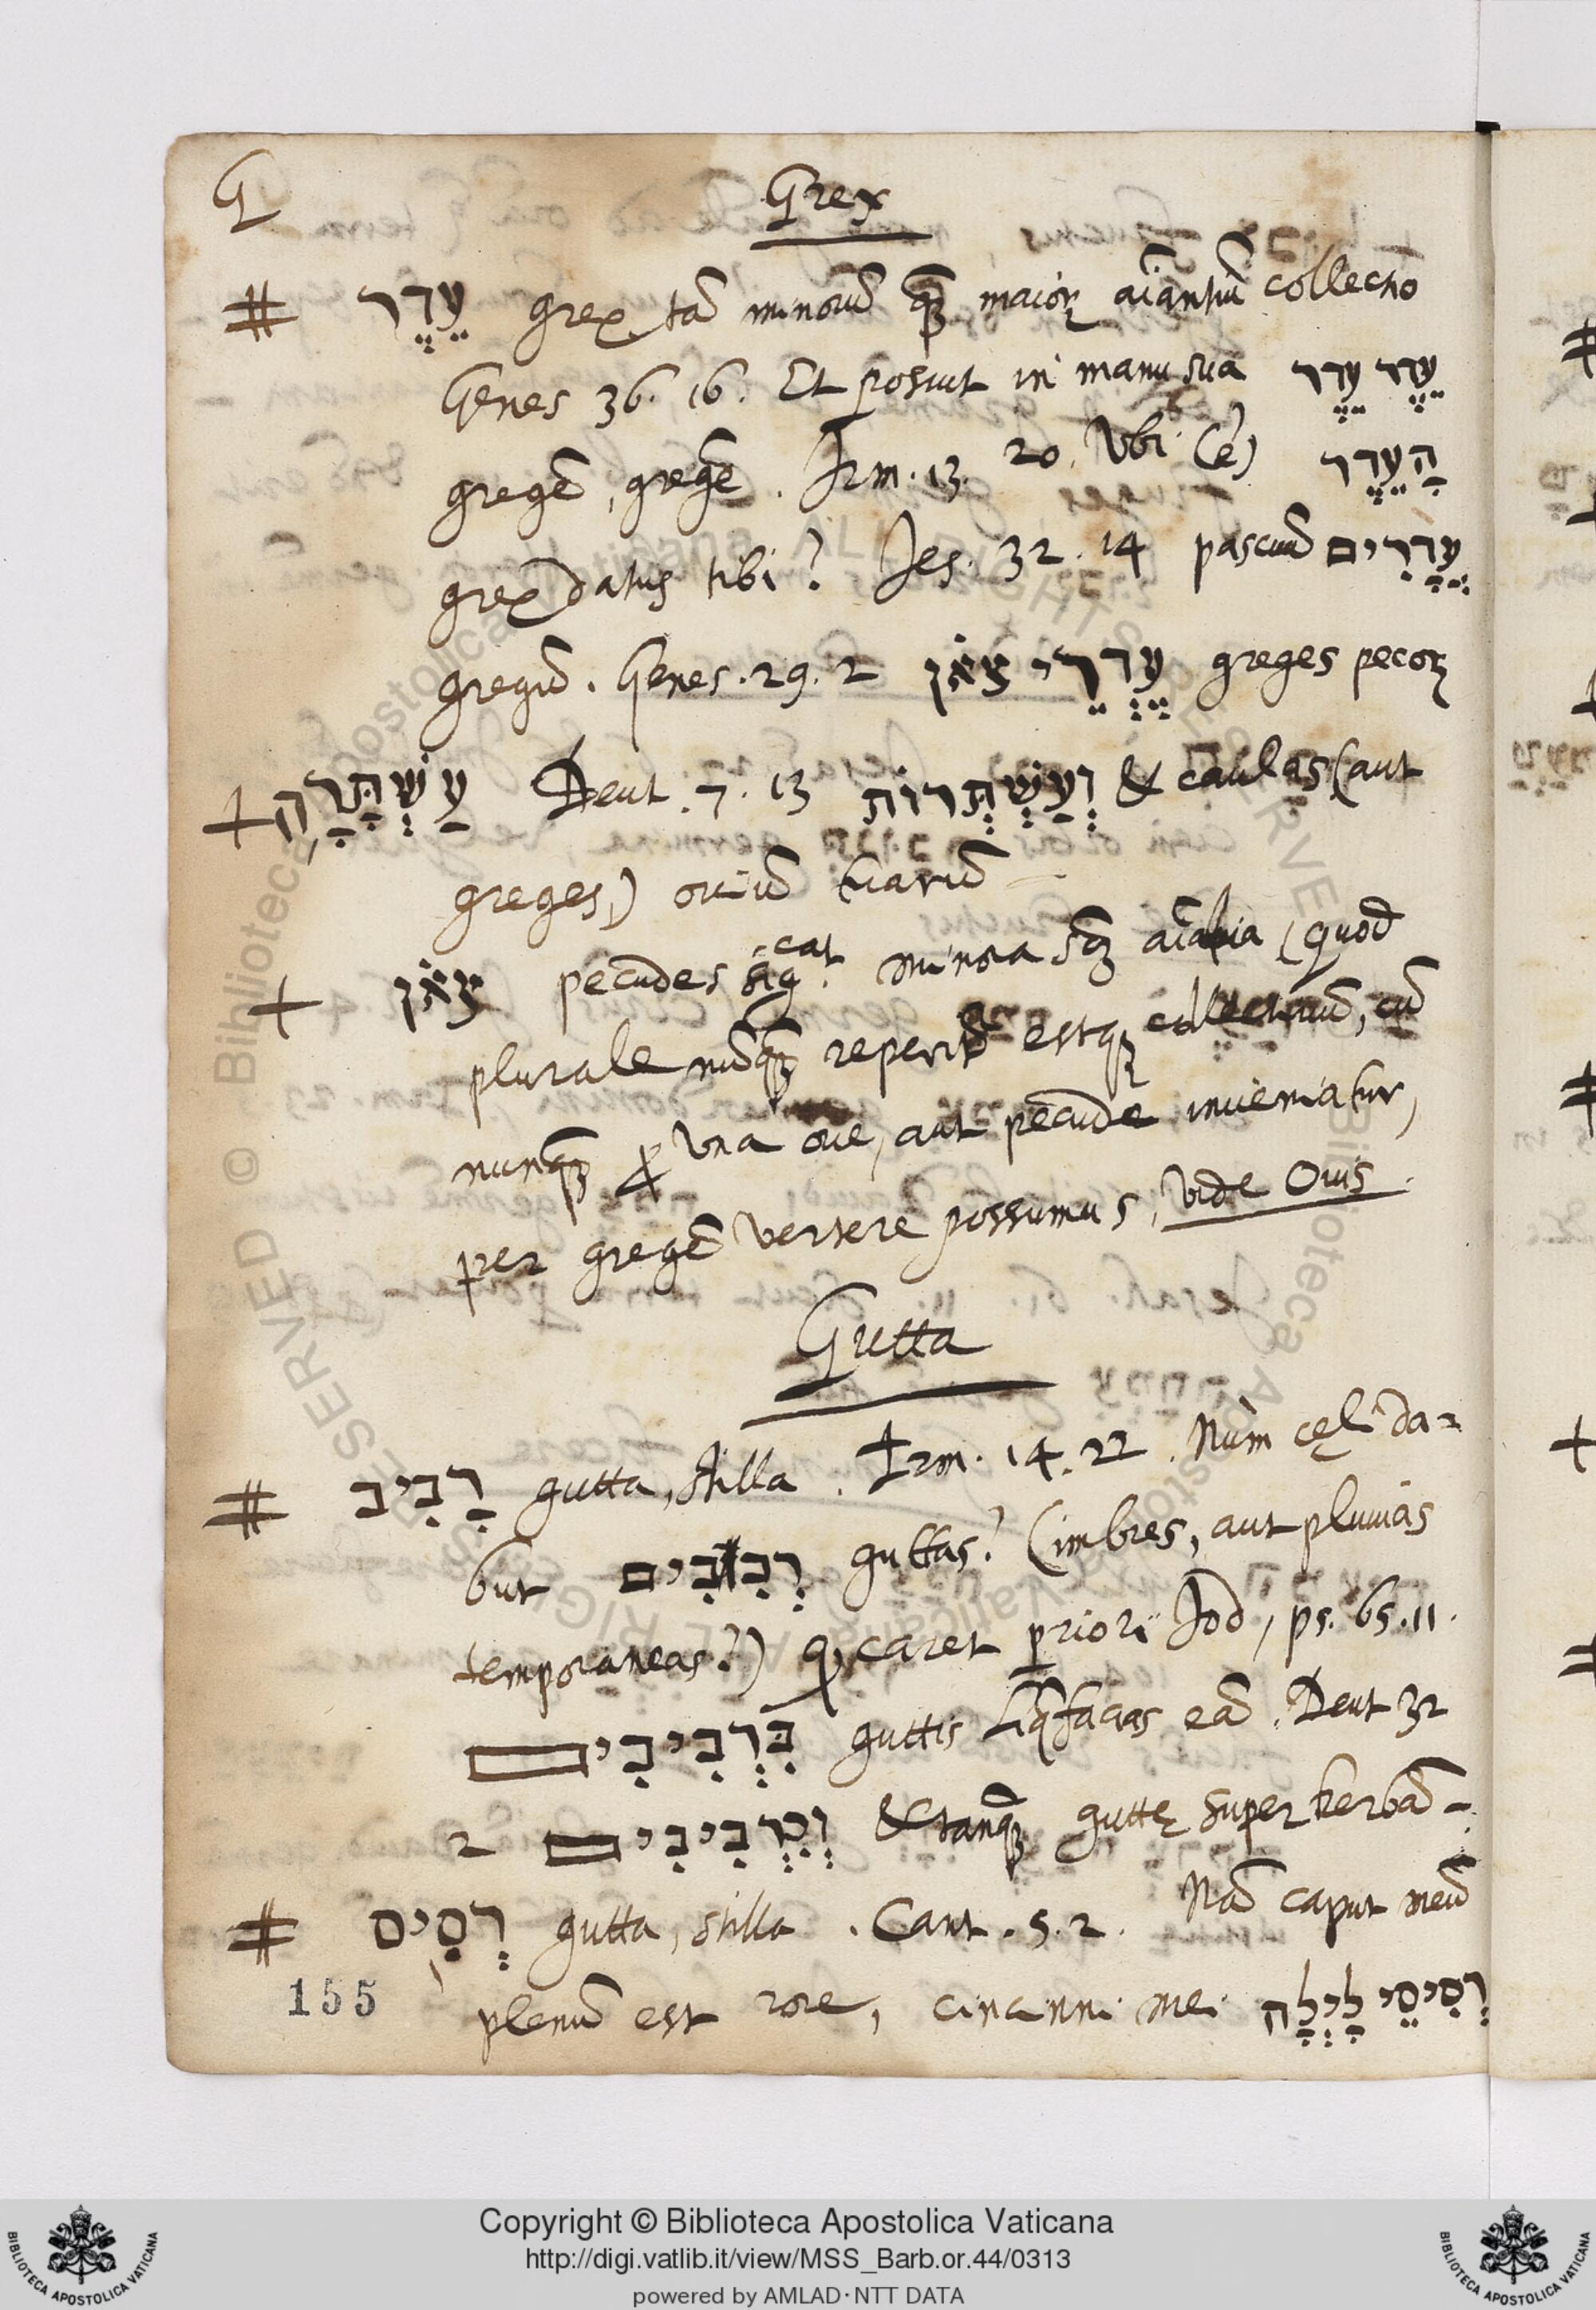 G Grex
# עֵדֶר grex, tā minorū quā maiorꝝ aīantiū collectio
Genes 36. 16. Et posuit in manu sua עֵדֶר עֵדֶר
gregē, gregē. Irm. 13. 20. Vbi (ē) הָעֵדֶר
grex datus tibi? Ies. 32. 14 pascuū עֲדָרִים
gregū. Genes. 29. 2 עֶדְרֵי צֹאן greges pecoꝝ
+ עַשְׁתָּרָה Deut. 7. 13 וְעַשְׁתְּרוֹת & caulas (aut
greges) ouiū tuarū
+ צֹאן pecudes sig.cat minora sꝫ aīalia (quod
plurale nūquā reperit estqꝫ collectiuū, cū
nunquā ꝓ vna oue, aut pecude inueniatur,
per gregē vertere possumus, vide Ouis.
Gutta
# רָבִיב gutta, stilla. Irm. 14. 22. Nùm cęli da=
but רְבִבִים guttas? (imbres, aut pluuias
temporaneas?) caret priori Iod, ps. 65. 11.
בִּרְבִיבִים guttis liqfacias eā. Deut 32
2 וְכִרְבִיבִים & tanquā guttę super herbā.
# רְסִיס gutta, stilla. Cant. 5. 2. Nā caput meū
plenū est rore, cincinni mei רְסִיסֵי לָיְלָה
155
© Biblioteca Apostolica Vaticana ALL RIGHTS RESERVED
Copyright © Biblioteca Apostolica Vaticana
http://digi.vatlib.it/view/MSS_Barb.or.44/0313
powered by AMLAD·NTT DATA
BIBLIOTECA APOSTOLICA VATICANA
BIBLIOTECA APOSTOLICA VATICANA